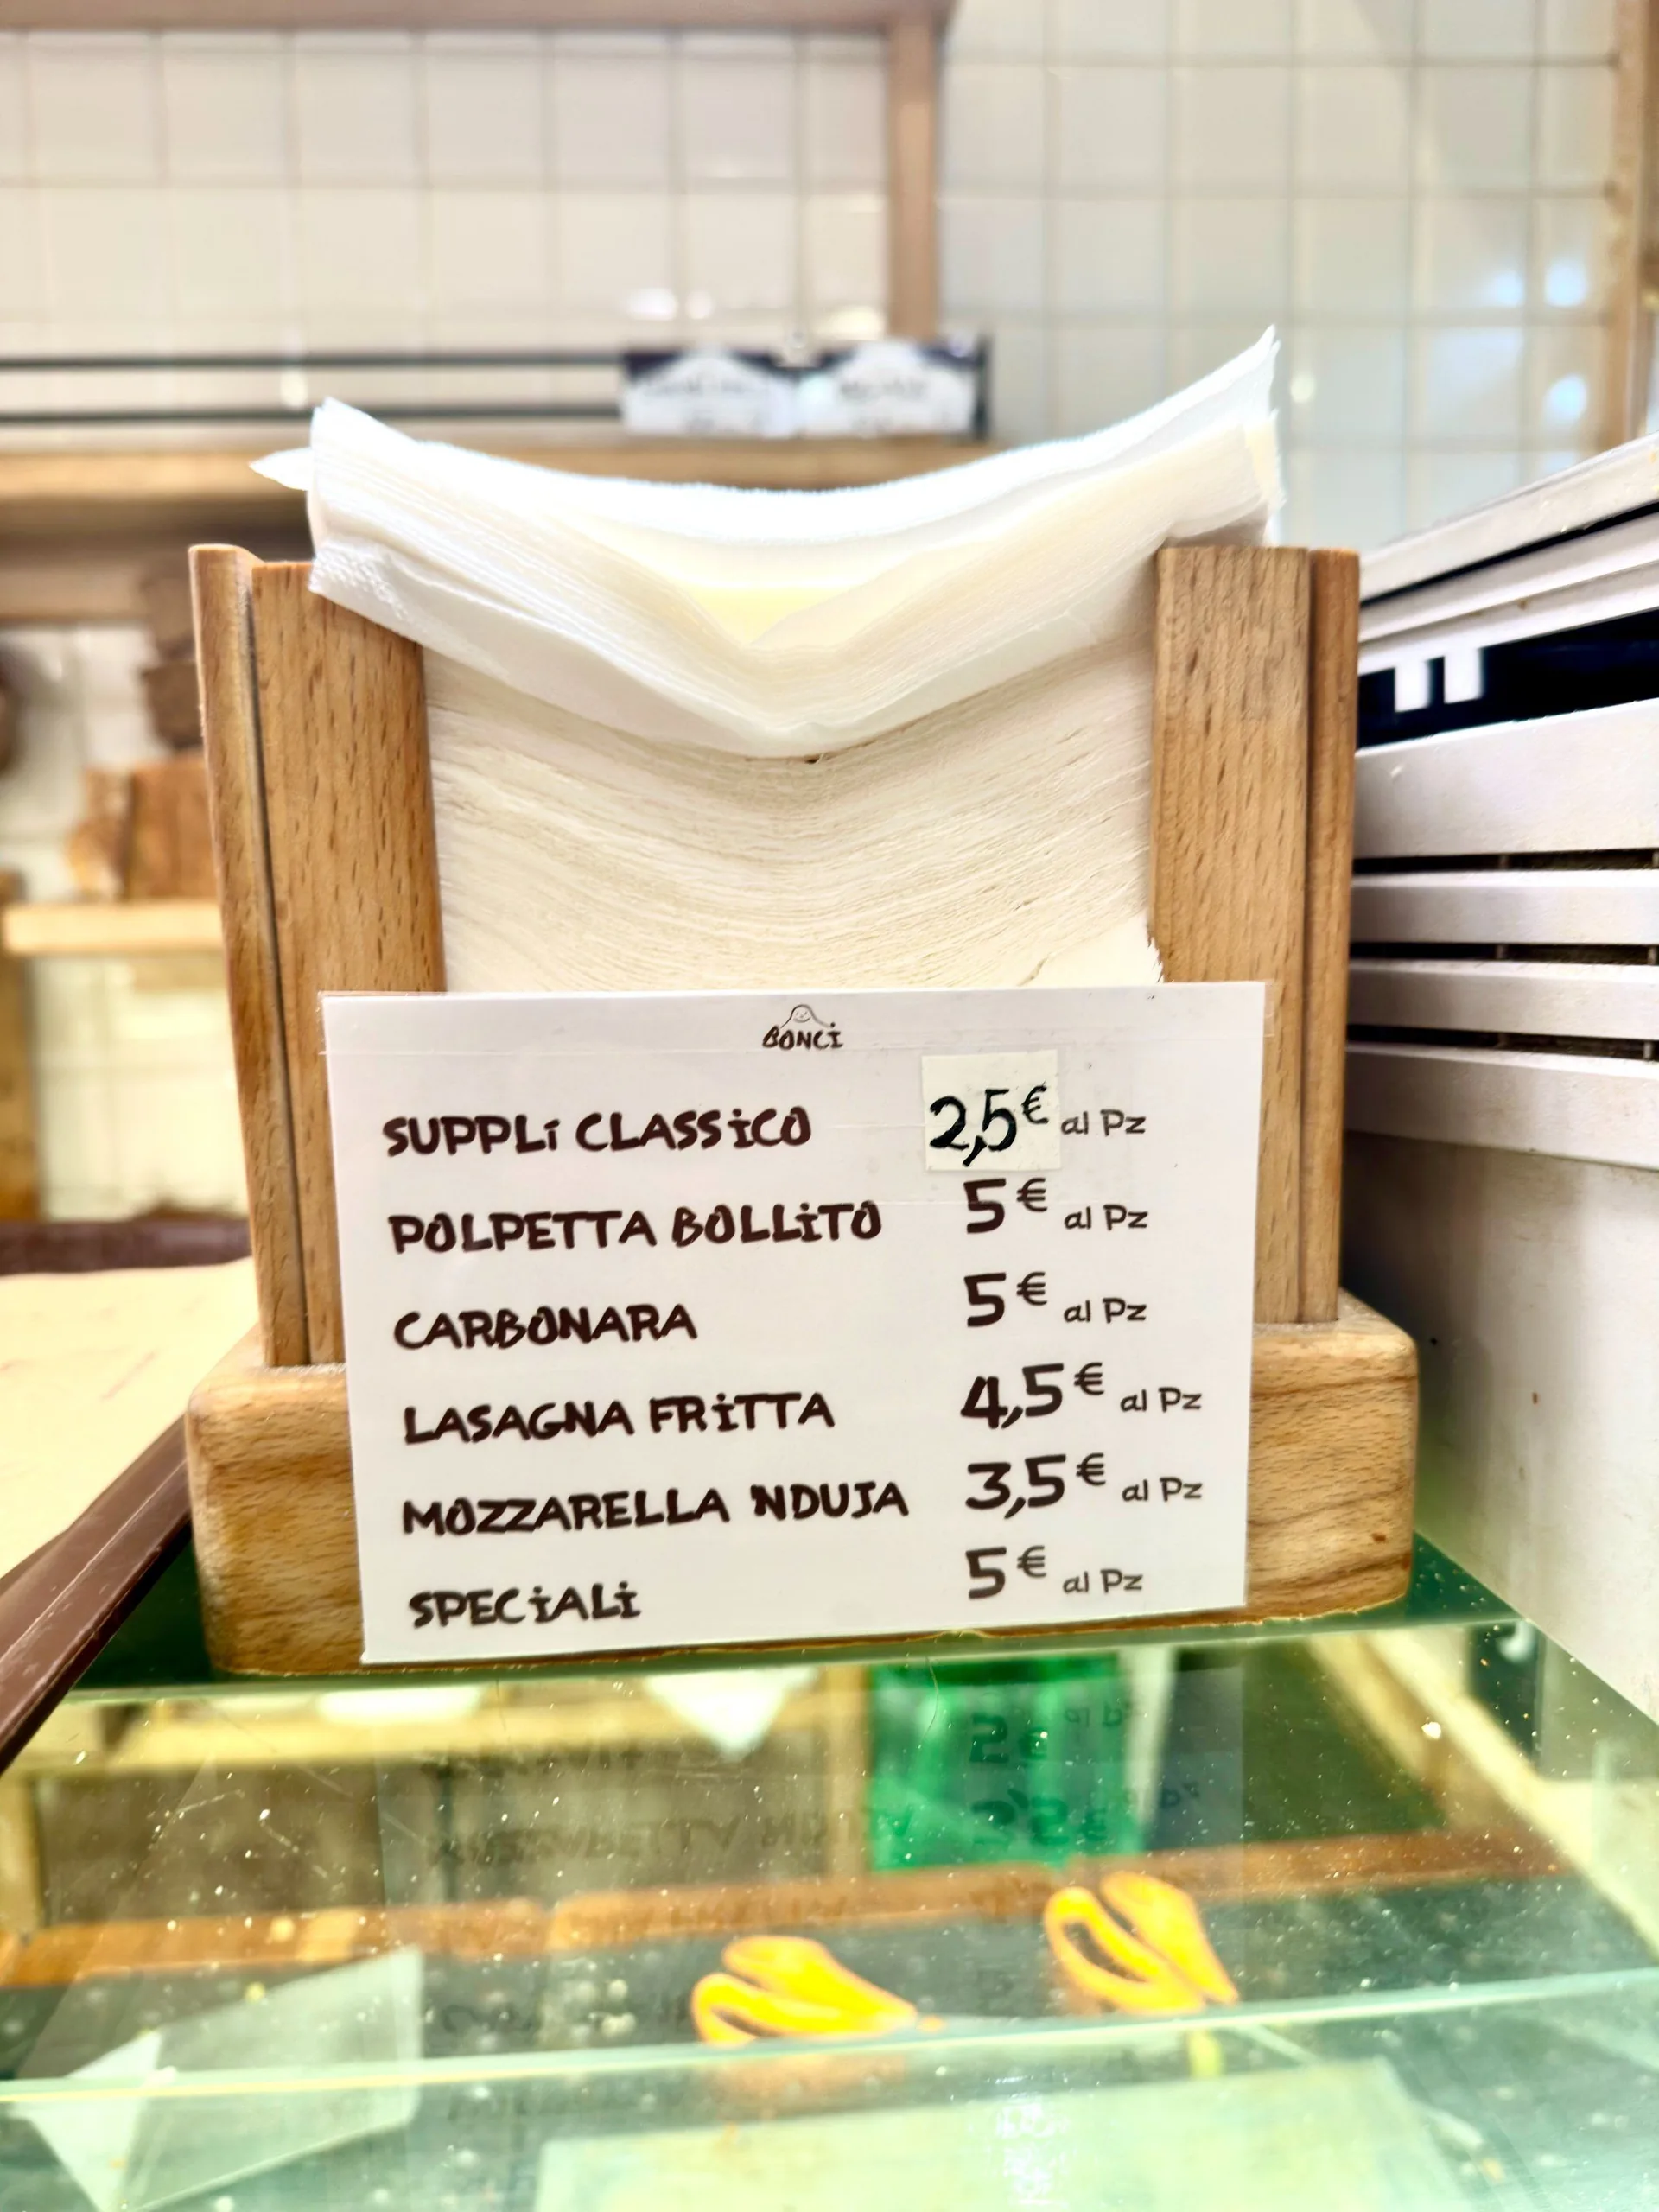 BONCI
SUPPLÍ CLASSICO 2,5€ al Pz
POLPETTA BOLLITO 5€ al Pz
CARBONARA 5€ al Pz
LASAGNA FRITTA 4,5€ al Pz
MOZZARELLA NDUJA 3,5€ al Pz
SPECIALI 5€ al Pz